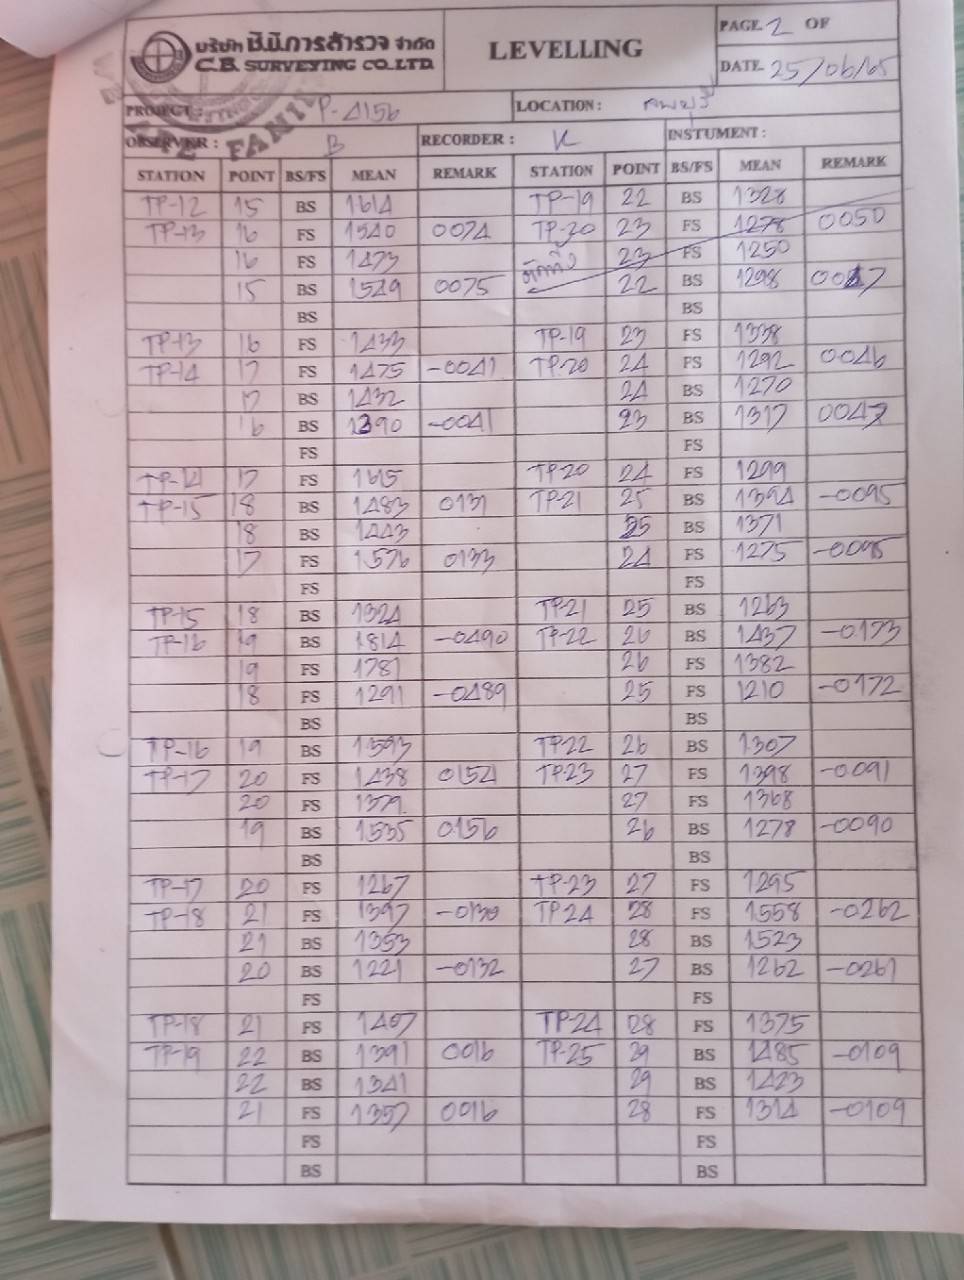 บริษัท ซี.บี.การสำรวจ จำกัด
C.B. SURVEYING CO.,LTD.
LEVELLING
PAGE 2 OF
DATE 25/06/65
PROJECT : P-4156 LOCATION :
OBSERVER : B RECORDER : K INSTUMENT :
STATION POINT BS/FS MEAN REMARK STATION POINT BS/FS MEAN REMARK
TP-12 15 BS 1614 TP-19 22 BS 1328
TP-13 16 FS 1540 0074 TP-20 23 FS 1278 0050
16 FS 1473 23 FS 1250
15 BS 1549 0075 22 BS 1298 0047
BS BS
TP-13 16 FS 1433 TP-19 23 FS 1338
TP-14 17 FS 1475 -0041 TP-20 24 FS 1292 0046
17 BS 1432 24 BS 1270
16 BS 1390 -0041 23 BS 1317 0047
FS FS
TP-14 17 FS 1615 TP-20 24 FS 1299
TP-15 18 BS 1483 0131 TP-21 25 BS 1394 -0095
18 BS 1443 25 BS 1371
17 FS 1576 0133 24 FS 1275 -0095
FS FS
TP-15 18 BS 1324 TP-21 25 BS 1263
TP-16 19 BS 1814 -0490 TP-22 26 BS 1437 -0173
19 FS 1781 26 FS 1382
18 FS 1291 -0489 25 FS 1210 -0172
BS BS
TP-16 19 BS 1593 TP-22 26 BS 1307
TP-17 20 FS 1438 0154 TP-23 27 FS 1398 -0091
20 FS 1379 27 FS 1368
19 BS 1535 0156 26 BS 1278 -0090
BS BS
TP-17 20 FS 1267 TP-23 27 FS 1295
TP-18 21 FS 1397 -0130 TP-24 28 FS 1558 -0262
21 BS 1353 28 BS 1523
20 BS 1221 -0132 27 BS 1262 -0261
FS FS
TP-18 21 FS 1407 TP-24 28 FS 1375
TP-19 22 BS 1391 0016 TP-25 29 BS 1485 -0109
22 BS 1341 29 BS 1423
21 FS 1357 0016 28 FS 1314 -0109
FS FS
BS BS